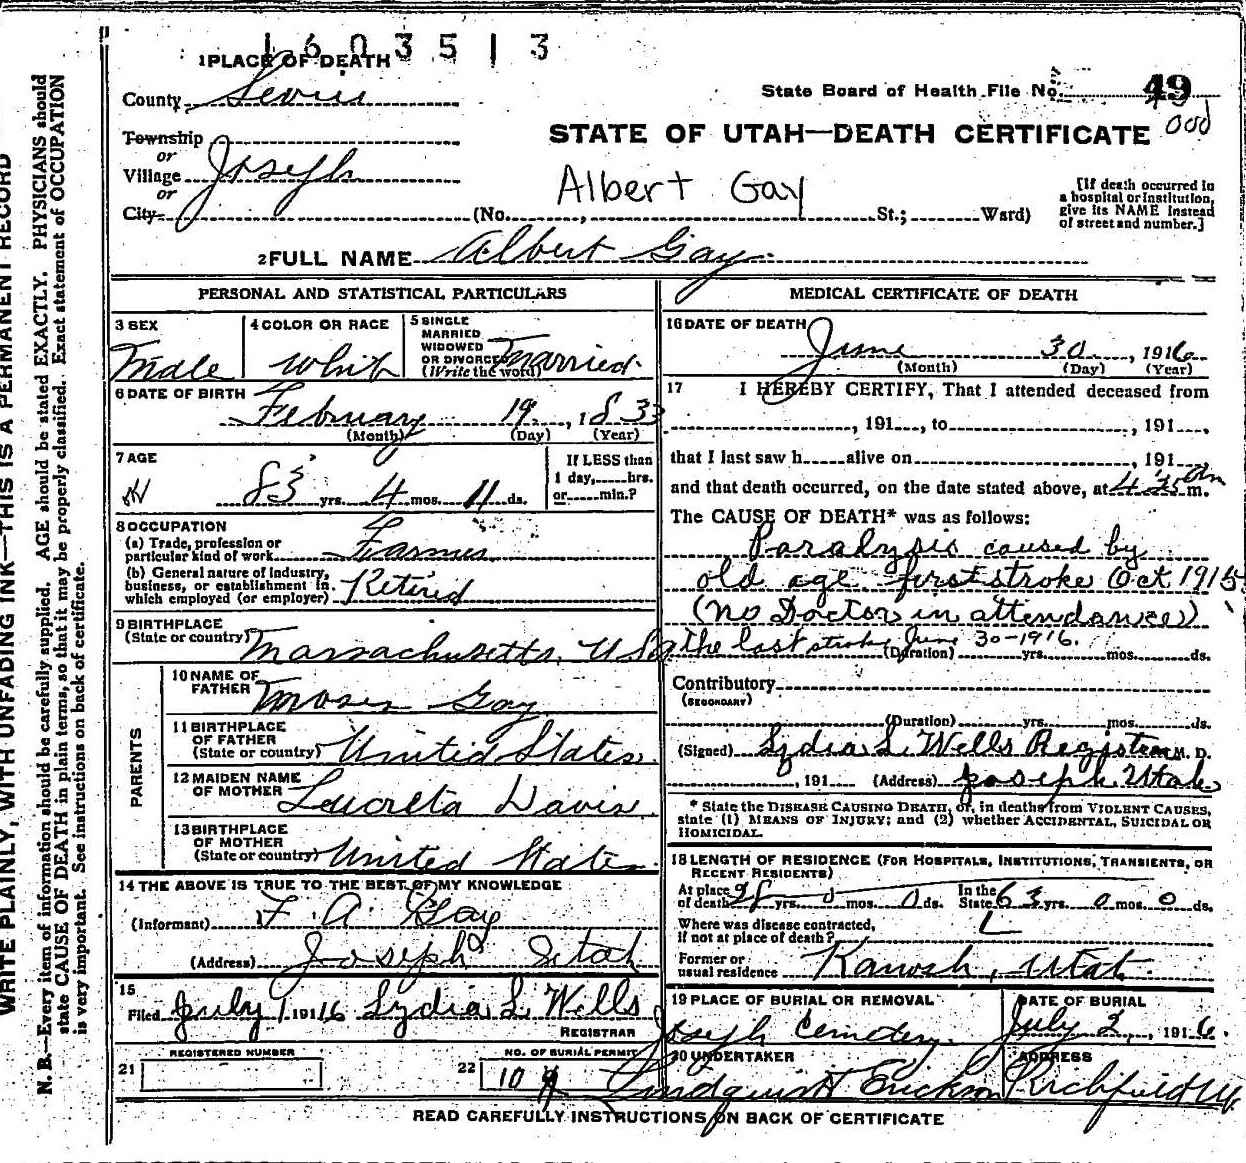 1603513
1 PLACE OF DEATH
County Sevier
State Board of Health File No. 49
Township
or
Village Joseph
or
City
STATE OF UTAH—DEATH CERTIFICATE
Albert Gay
(No. , St.; Ward)
[If death occurred in
a hospital or institution,
give its NAME instead
of street and number.]
2 FULL NAME Albert Gay
PERSONAL AND STATISTICAL PARTICULARS
3 SEX
Male
4 COLOR OR RACE
White
5 SINGLE
MARRIED
WIDOWED
OR DIVORCED
(Write the word)
Married
6 DATE OF BIRTH
February 19, 1833
(Month) (Day) (Year)
7 AGE
83 yrs. 4 mos. 11 ds.
If LESS than
1 day, hrs.
or min.?
8 OCCUPATION
(a) Trade, profession or
particular kind of work Farmer
(b) General nature of industry,
business, or establishment in
which employed (or employer) Retired
9 BIRTHPLACE
(State or country) Massachusetts, USA
PARENTS
10 NAME OF
FATHER Moses Gay
11 BIRTHPLACE
OF FATHER
(State or country) United States
12 MAIDEN NAME
OF MOTHER Lucreta Davis
13 BIRTHPLACE
OF MOTHER
(State or country) United States
14 THE ABOVE IS TRUE TO THE BEST OF MY KNOWLEDGE
(Informant) F. A. Gay
(Address) Joseph Utah
15
Filed July 1 1916 Lydia L. Wells
REGISTRAR
REGISTERED NUMBER
21
NO. OF BURIAL PERMIT
22 10
MEDICAL CERTIFICATE OF DEATH
16 DATE OF DEATH
June 30, 1916
(Month) (Day) (Year)
17 I HEREBY CERTIFY, That I attended deceased from
, 191 , to , 191 ,
that I last saw h alive on , 191
and that death occurred, on the date stated above, at am m.
The CAUSE OF DEATH* was as follows:
Paralysis caused by
old age first stroke Oct 1915
(No Doctor in attendance)
The last stroke June 30-1916.
(Duration) yrs. mos. ds.
Contributory
(SECONDARY)
(Duration) yrs. mos. ds.
(Signed) Lydia L. Wells Registrar M. D.
, 191 (Address) Joseph Utah
* State the DISEASE CAUSING DEATH, or, in deaths from VIOLENT CAUSES,
state (1) MEANS OF INJURY; and (2) whether ACCIDENTAL, SUICIDAL OR
HOMICIDAL.
18 LENGTH OF RESIDENCE (FOR HOSPITALS, INSTITUTIONS, TRANSIENTS, OR
RECENT RESIDENTS)
At place
of death 28 yrs. 0 mos. 0 ds.
In the
State 63 yrs. 0 mos. 0 ds.
Where was disease contracted,
if not at place of death?
Former or
usual residence Kanosh, Utah
19 PLACE OF BURIAL OR REMOVAL
Joseph Cemetery.
DATE OF BURIAL
July 2, 1916.
20 UNDERTAKER
Lindquist Erickson
ADDRESS
Richfield U.
READ CAREFULLY INSTRUCTIONS ON BACK OF CERTIFICATE
WRITE PLAINLY, WITH UNFADING INK—THIS IS A PERMANENT RECORD
N. B.—Every item of information should be carefully supplied. AGE should be stated EXACTLY. PHYSICIANS should
state CAUSE OF DEATH in plain terms, so that it may be properly classified. Exact statement of OCCUPATION
is very important. See instructions on back of certificate.